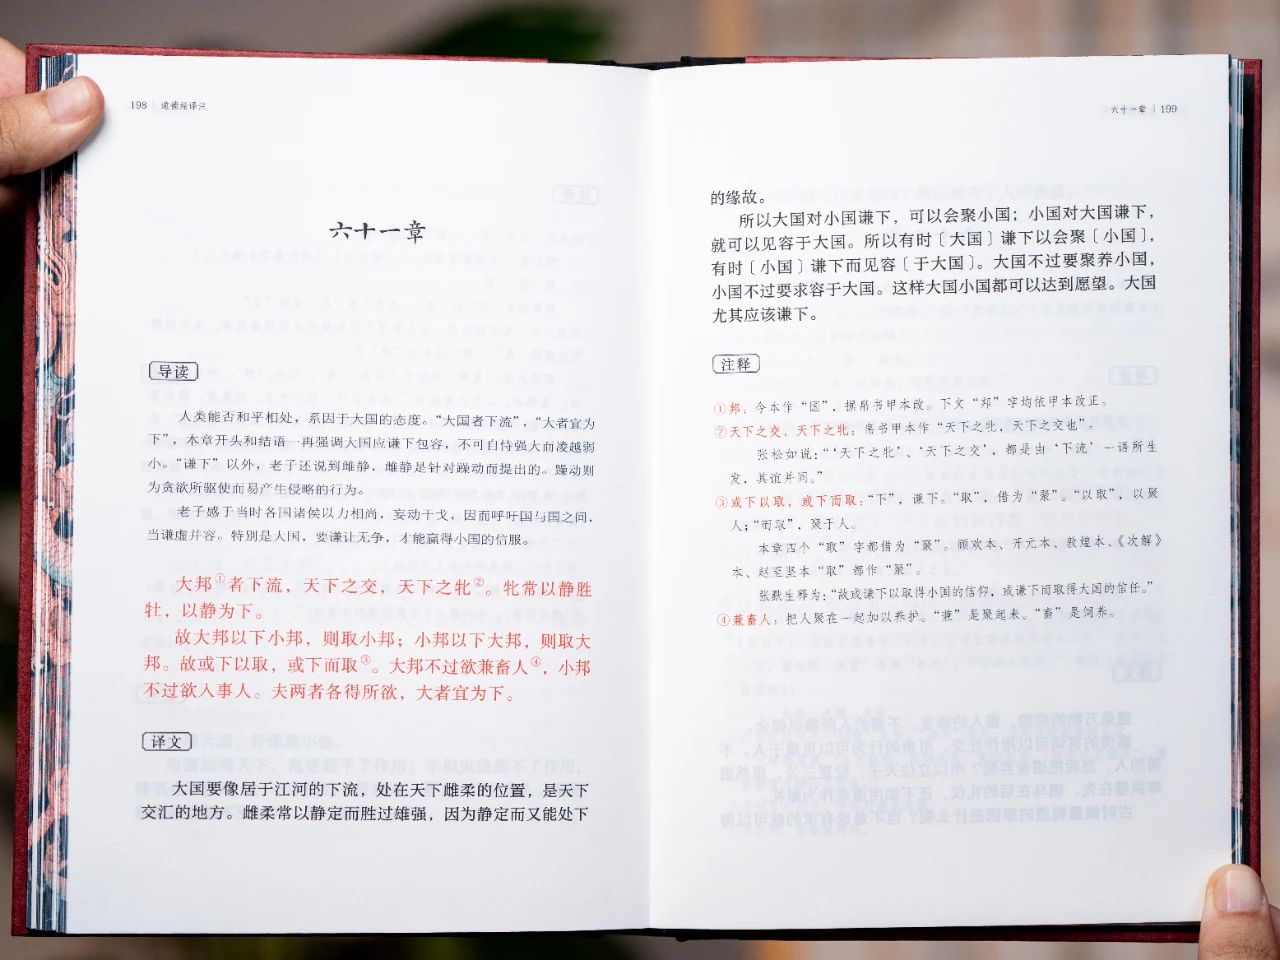 198 | 道德经译注
六十一章
导读
人类能否和平相处，系因于大国的态度。“大国者下流”，“大者宜为
下”，本章开头和结语一再强调大国应谦下包容，不可自恃强大而凌越弱
小。“谦下”以外，老子还说到雌静，雌静是针对躁动而提出的。躁动则
为贪欲所驱使而易产生侵略的行为。
老子感于当时各国诸侯以力相尚，妄动干戈，因而呼吁国与国之间，
当谦虚并容。特别是大国，要谦让无争，才能赢得小国的信服。
大邦①者下流，天下之交，天下之牝②。牝常以静胜
牡，以静为下。
故大邦以下小邦，则取小邦；小邦以下大邦，则取大
邦。故或下以取，或下而取③。大邦不过欲兼畜人④，小邦
不过欲入事人。夫两者各得所欲，大者宜为下。
译文
大国要像居于江河的下流，处在天下雌柔的位置，是天下
交汇的地方。雌柔常以静定而胜过雄强，因为静定而又能处下
六十一章 | 199
的缘故。
所以大国对小国谦下，可以会聚小国；小国对大国谦下，
就可以见容于大国。所以有时〔大国〕谦下以会聚〔小国〕，
有时〔小国〕谦下而见容〔于大国〕。大国不过要聚养小国，
小国不过要求容于大国。这样大国小国都可以达到愿望。大国
尤其应该谦下。
注释
①邦：今本作“国”，据帛书甲本改。下文“邦”字均依甲本改正。
②天下之交，天下之牝：帛书甲本作“天下之牝，天下之交也”。
张松如说：“‘天下之牝’、‘天下之交’，都是由‘下流’一语所生
发，其谊并同。”
③或下以取，或下而取：“下”，谦下。“取”，借为“聚”。“以取”，以聚
人；“而取”，聚于人。
本章四个“取”字都借为“聚”。顾欢本、开元本、敦煌本、《次解》
本、赵至坚本“取”都作“聚”。
张默生释为：“故或谦下以取得小国的信仰，或谦下而取得大国的信任。”
④兼畜人：把人聚在一起加以养护。“兼”是聚起来。“畜”是饲养。